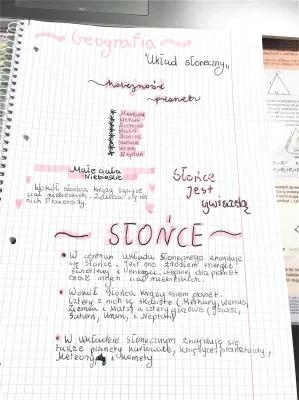 Geografia
Układ słoneczny"
Kolejność
planet
Merkury
Wenus
Ziemia
Mars
Jowisz
Saturn
Uran
Neptun
Małe ciała
Niebieskie
Wokół słońca krąży
ciał niebieskich. 
nich
Słońce
jest
gwiazdą
SŁOŃCE
W centrum Układu Słonecznego znajduje
się Słońce. Jest ono źródłem energii
świetlnej i energii cieplnej dla planet
oraz innych ciał niebieskich.
Wokół Słońca krąży osiem planet.
Cztery z nich są skaliste (Merkury, Wenus,
Ziemia i Mars) a cztery gazowe (Jowisz,
Saturn, Uran, i Neptun)
W Układzie słonecznym znajdują się
także planety karłowate, księżyce, planetoidy,
Meteory i komety